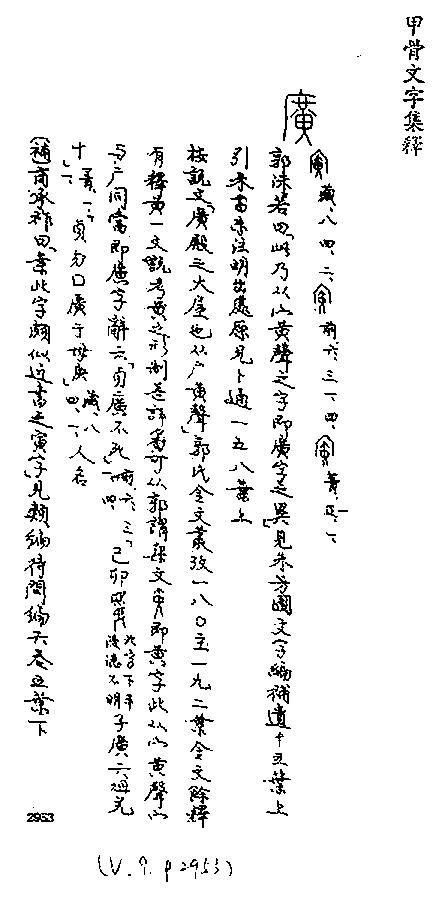 甲骨文字集釋
廣
藏、八四、二、前、六、三一、四、菁、五、一
郭沫若曰「此乃从宀黃聲之字即廣字之異」見朱芳圃文字編補遺十五葉上
引朱書未注明出處原見卜通一五八葉上
按說文「廣殿之大屋也从广黃聲」郭氏金文叢攷一八〇至一九二葉金文餘釋
有釋黃一文說考黃之形制甚詳審可從郭謂契文即黃字此从宀黃聲宀
與广同當即廣字辭云「貞廣不死」前、六、三一、四、己卯 此字下半漫漶不明 子廣
十 菁、五、一、貞勿囗廣于 藏、八四、二、人名
(補)商承祚曰「案此字頗似近古之寅字」見類編待問編六卷五葉下
2953
(V. 9. p 2953)